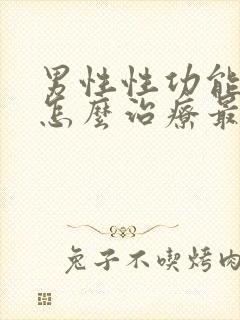 男性性功能
怎麼治療最
兔子不喫烤肉